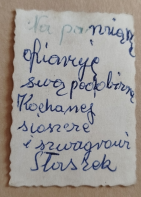 Na pamięć
ofiaruję
swą podobiznę
Kochanej
siostrze
i szwagrowi
Staszek